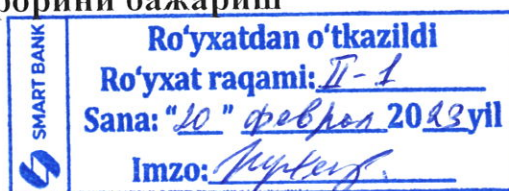 орини бажариш
SMART BANK
Ro‘yxatdan o‘tkazildi
Ro‘yxat raqami: II-1
Sana: "20" феврал 2023 yil
Imzo: